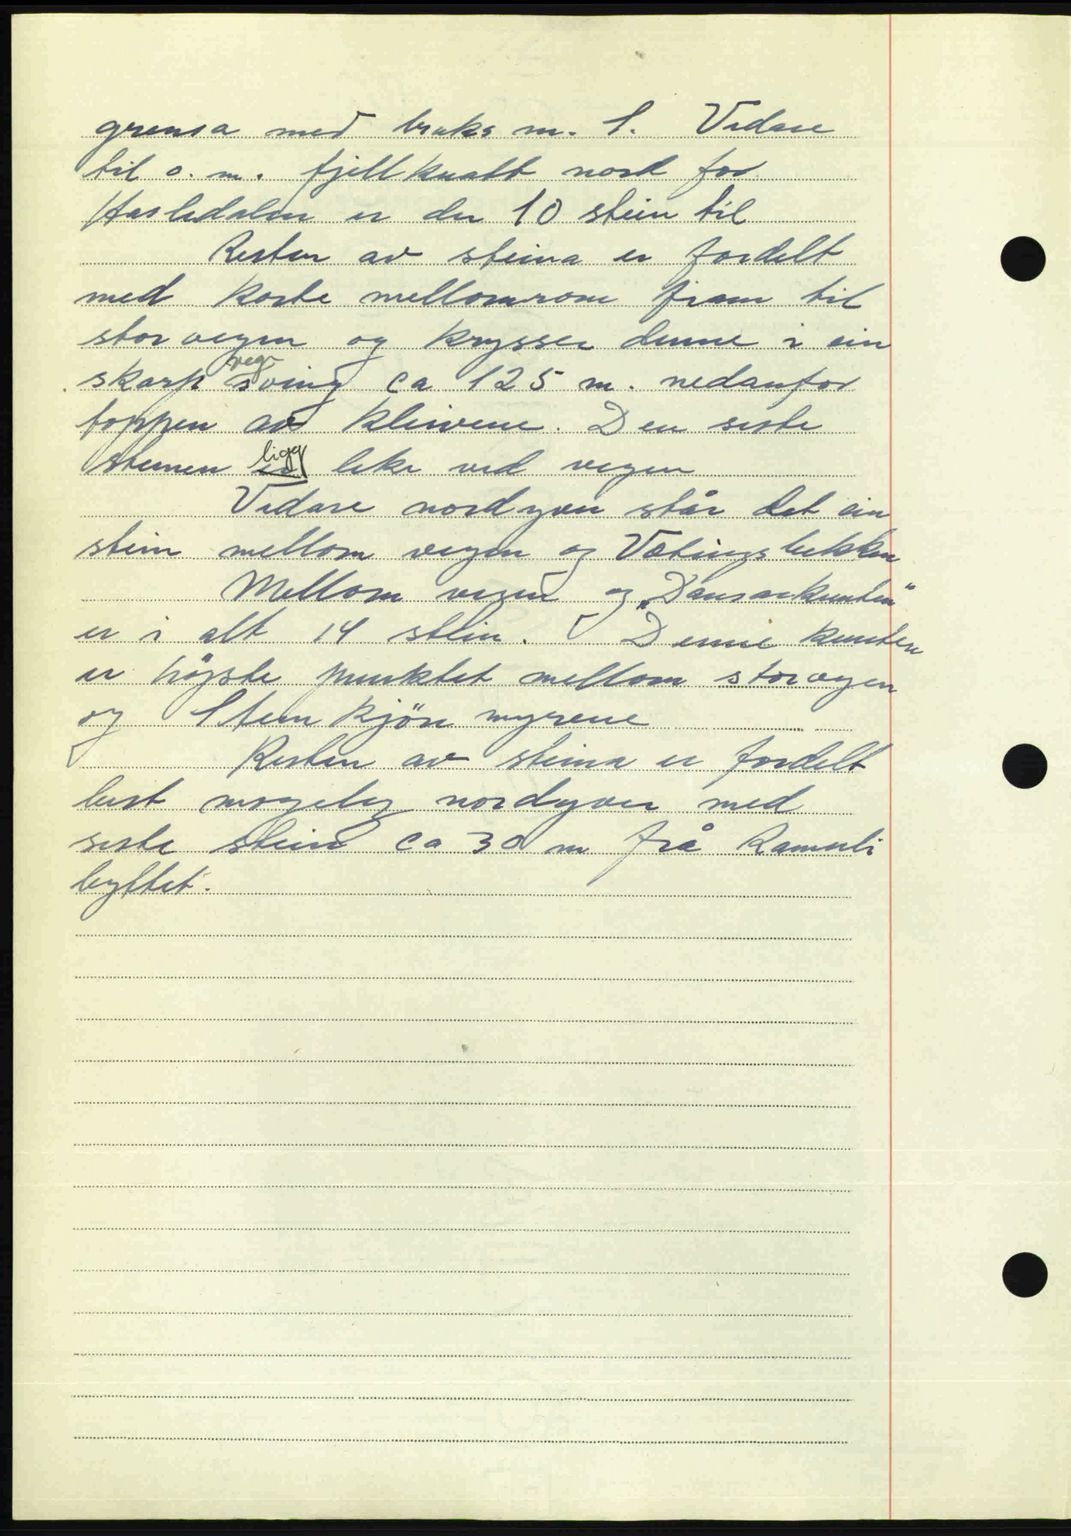 grensa med bruks nr. 1. Vidare
til o. m. fjellknatt nord for
Hasledalen er der 10 stein til
Resten av steina er fordelt
med korte mellomrom fram til
storvegen og krysser denne i ein
skarp vegsving ca 125 m. nedanfor
toppen av kleivene. Den siste
steinen ligg like ved vegen
Vidare nordyver står det ein
stein mellom vegen og Vetingsbekken
Mellom vegen og "Dansarkunten"
er i alt 14 stein. Denne kunten
er høgste punktet mellom storvegen
og Steinkjönmyrene
Resten av steina er fordelt
best mogeleg nordyver med
siste stein ca 30 m frå Ramsli
byttet.